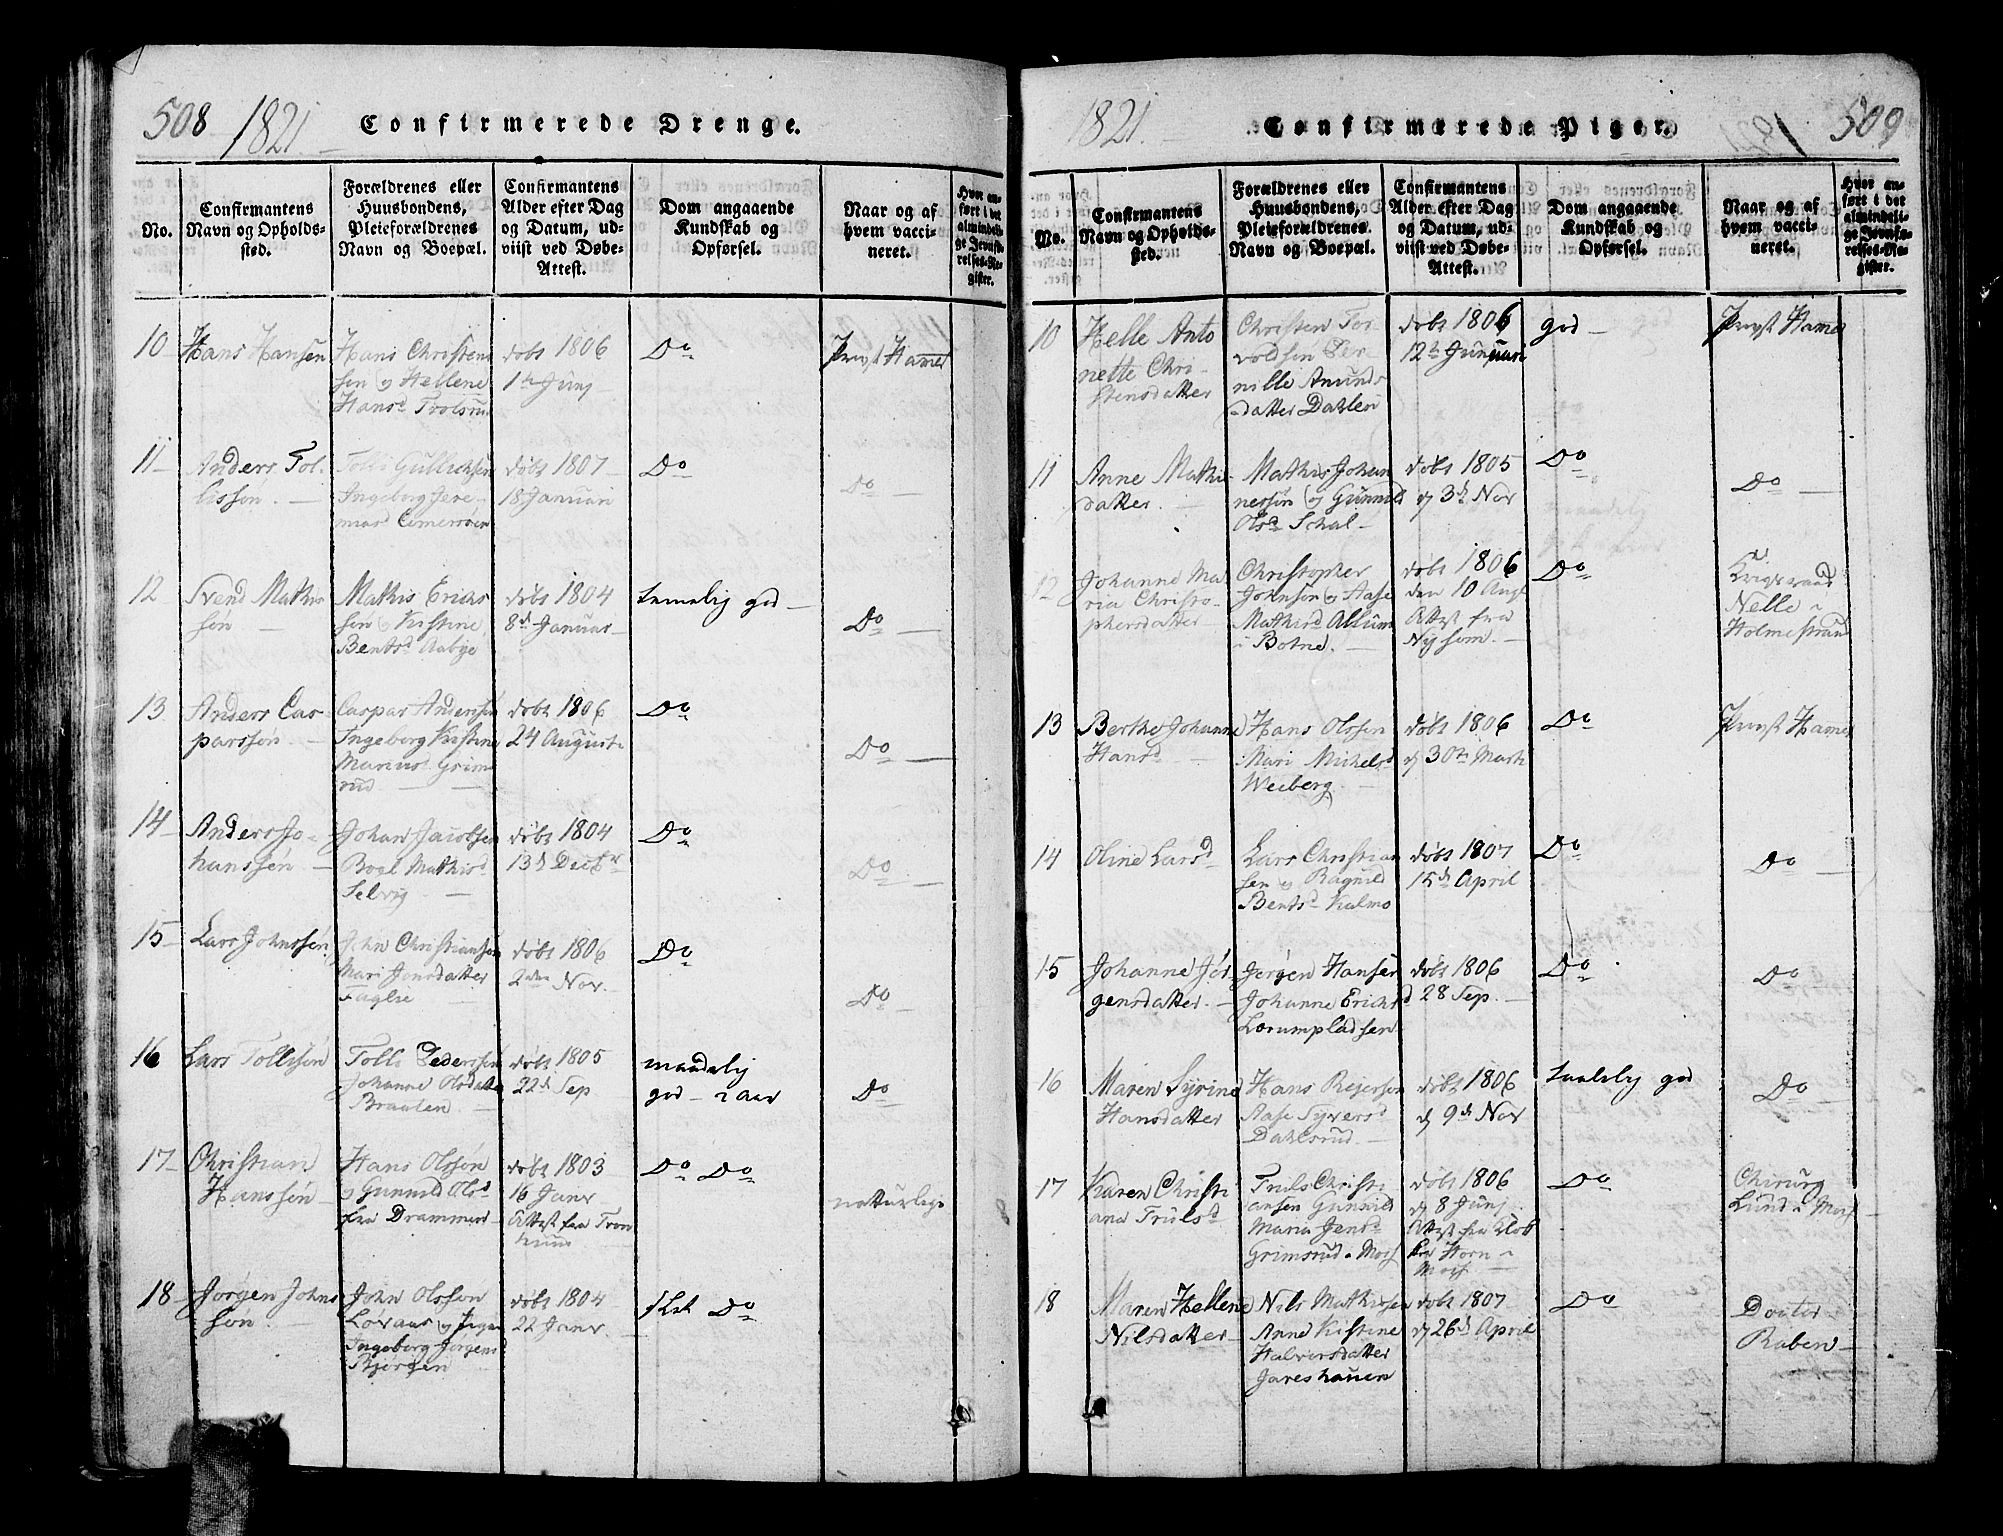 508 1821. Confirmerede Drenge.
No.
Confirmantens
Navn og Opholds-
sted.
Forældrenes eller
Huusbondens,
Pleieforældrenes
Navn og Boepæl.
Confirmantens
Alder efter Dag
og Datum, ud-
viist ved Døbe-
Attest.
Dom angaaende
Kundskab og
Opførsel.
Naar og af
hvem vacci-
neret.
Hvor an-
ført i det
almindeli-
ge Jevnfø-
relses-Re-
gister.
10
Hans Hansen
Hans Christen
sen og Hellene
Hansd
døbt 1806
1te Junj
Do
Provst Hamer
11
Anders Tol
lissøn
Tolli Gullichsen
Ingeborg Jere-
mias
døbt 1807
18 Januari
Do
Do
12
Svend Mathis
søn
Mathis Erichs
søn og Kistine
Bentsd Aabye
døbt 1804
8d Januar
temelig god
Do
13
Anders Cas
parssøn
Caspar Anderssen
Ingeborg Kistine
Mariusd Grim
rud
døbt 1806
24 August
Do
Do
14
Anders Jo-
hanssøn
Johan Jacobsen
Boel Mathisd
Selvig
døbt 1804
13d Decbr
Do
Do
15
Lars Johnssøn
John Christiansen
Mari Jensdatter
døbt 1806
2den Nov.
Do
Do
16
Lars Tollisøn
Tolli Pederssøn
Johanne Olsdatter
Braaten
døbt 1805
22d Sep
maadelig
god
Do
17
Christian
Hanssøn
Hans Olssøn
og Gunnild Olsd
fra Drammen
døbt 1803
16 Janr
Attest fra Tron
hiem
Do Do
natturlige
18
Jørgen Johns
søn.
John Olssøn
Ingeborg Jørgensd
Bjørgen
døbt 1804
22 Janr
slet Do
1821. Confirmerede Piger. 509
No.
Confirmantens
Navn og Opholds-
sted.
Forældrenes eller
Huusbondens,
Pleieforældrenes
Navn og Boepæl.
Confirmantens
Alder efter Dag
og Datum, ud-
viist ved Døbe-
Attest.
Dom angaaende
Kundskab og
Opførsel.
Naar og af
hvem vacci-
neret.
Hvor an-
ført i det
almindeli-
ge Jevnfø-
relses-Re-
gister.
10
Helle Anto
nette Chri-
stensdatter
Christen Tor
voldsøn Per
nille Amunds
datter Dahlen
døbt 1806
12te Januari
god
Provst Hamer
11
Anne Mathis
datter
Mathis Johan
nessøn og Gunnild
Olsd Schal
døbt 1805
d 3d Nov
Do
Do
12
Johanne Ma
ria Christo-
phersdatter
Christopher
Johnsøn og Aase
Mathisd Allum
i Botne.
døbt 1806
den 10 Augt
Attest fra
Do
Krigsraad
Nelle i
Holmestrand
13
Berthe Johanne
Hansd
Hans Olssen
Mari Michelsd
Weiberg
døbt 1806
d 30te Marti
Do
Provst Hamer
14
Oline Larsd
Lars Christian
sen og Ragnild
Bentsd Kalmo
døbt 1807
15d April
Do
Do
15
Johanne Jør
gensdatter
Jørgen Hansen
Johanne Erichsd
Lørumpladsen
døbt 1806
28 Sep.
Do
Do
16
Maren Syrine
Hansdatter
Hans Rejersøn
Aase Syversd
Dahlsrud
døbt 1806
d 9d Nov
taalelig god
Do
17
Karen Christi
ane Trulsd
Truls Christi
ansen Gunnild
Maria Jensd
Grimsrud i Moss
døbt 1806
d 8 Junj
Attest fra
Horn i
Moss
Do
Chirurg
Lund i Moss
18
Maren Hellene
Nilsdatter
Nils Mathissen
Anne Kistine
Halvorsdatter
Jareshauen
døbt 1807
d 26d April
Do
Docter
Raben